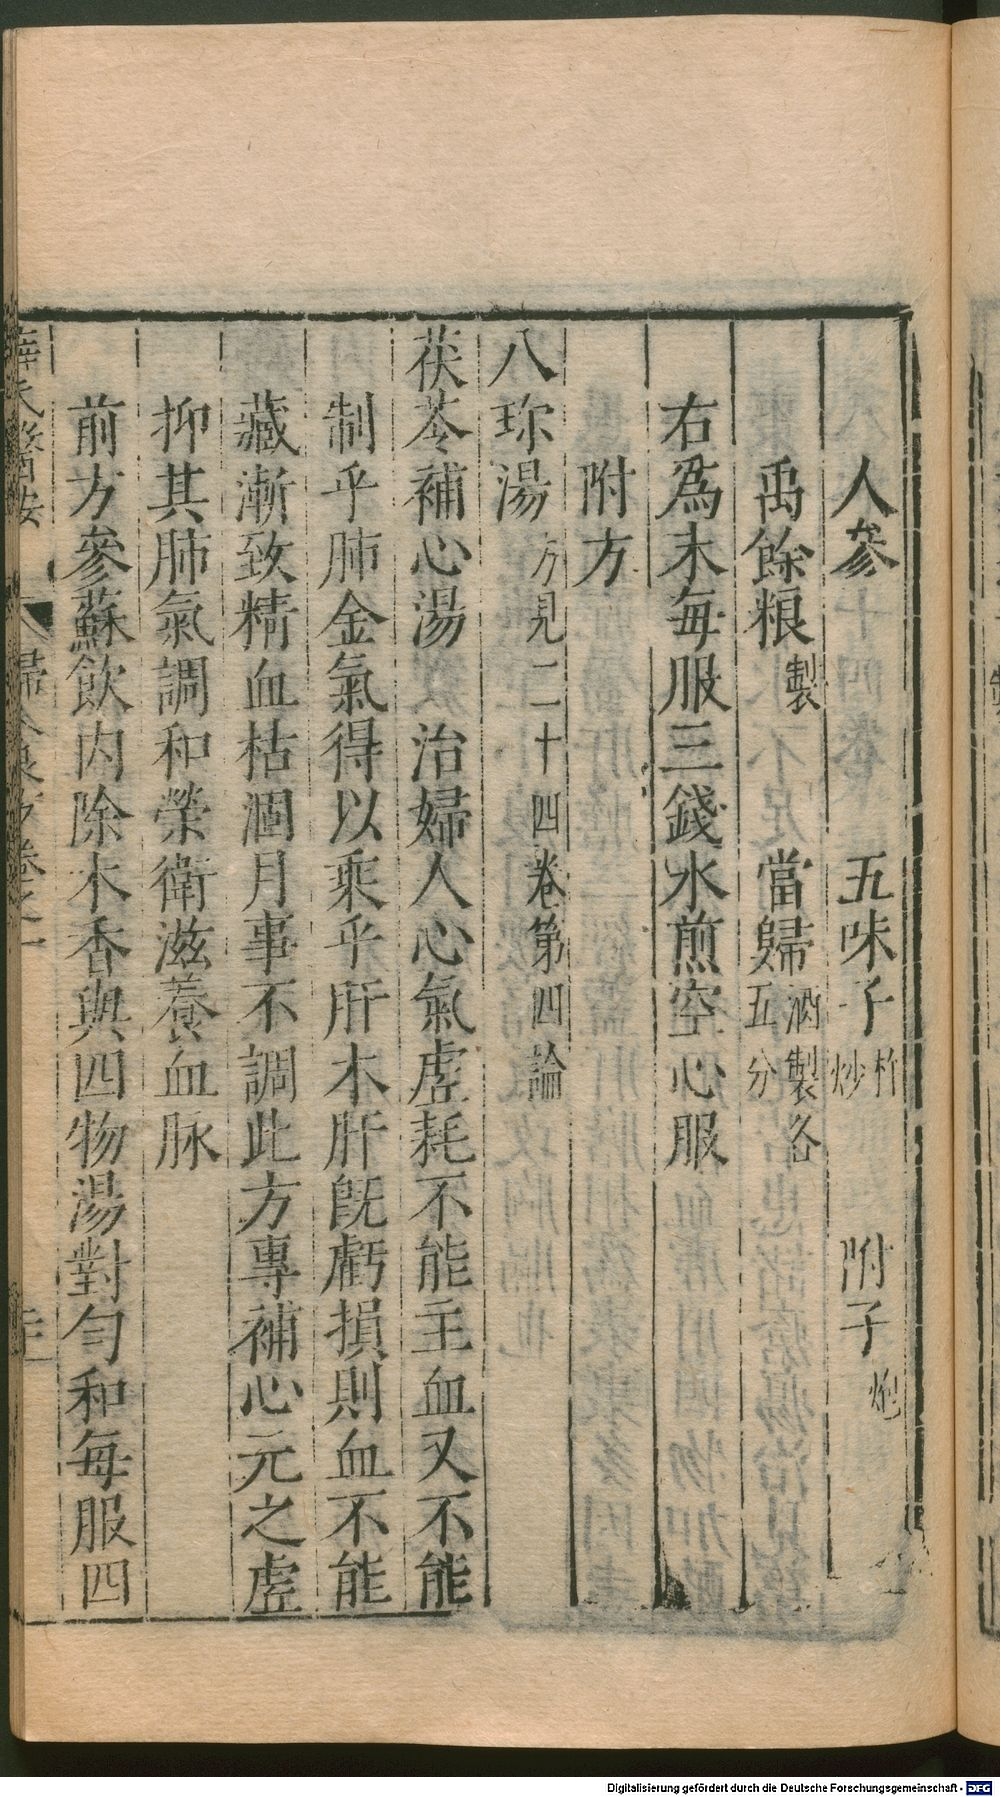 人參　五味子杵炒　附子炮
禹餘粮製　當歸酒製各五分
右為末每服三錢水煎空心服
附方
八珎湯方見二十四卷第四論
茯苓補心湯　治婦人心氣虚耗不能主血又不能
制乎肺金氣得以乘乎肝木肝旣虧損則血不能
藏漸致精血枯涸月事不調此方專補心元之虚
抑其肺氣調和榮衛滋養血脉
前方參蘇飲内除木香與四物湯對勻和每服四
Digitalisierung gefördert durch die Deutsche Forschungsgemeinschaft - DFG